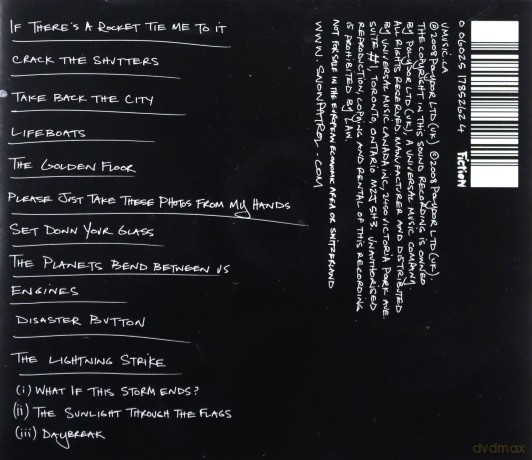 IF THERE'S A ROCKET TIE ME TO IT
CRACK THE SHUTTERS
TAKE BACK THE CITY
LIFEBOATS
THE GOLDEN FLOOR
PLEASE JUST TAKE THESE PHOTOS FROM MY HANDS
SET DOWN YOUR GLASS
THE PLANETS BEND BETWEEN US
ENGINES
DISASTER BUTTON
THE LIGHTNING STRIKE
(i) WHAT IF THIS STORM ENDS?
(ii) THE SUNLIGHT THROUGH THE FLAGS
(iii) DAYBREAK
0 06025 17852624 Fiction
UMUSIC.CA
℗2008 POLYDOR LTD (UK) ©2008 POLYDOR LTD (UK).
THE COPYRIGHT IN THIS SOUND RECORDING IS OWNED
BY POLYDOR LTD (UK), A UNIVERSAL MUSIC COMPANY.
ALL RIGHTS RESERVED. MANUFACTURED AND DISTRIBUTED
BY UNIVERSAL MUSIC CANADA INC, 2450 VICTORIA PARK AVE.
SUITE #1, TORONTO, ONTARIO M2J 5H3. UNAUTHORISED
REPRODUCTION, COPYING AND RENTAL OF THIS RECORDING
IS PROHIBITED BY LAW.
NOT FOR SALE IN THE EUROPEAN ECONOMIC AREA OR SWITZERLAND
WWW.SNOWPATROL.COM
dvdmax